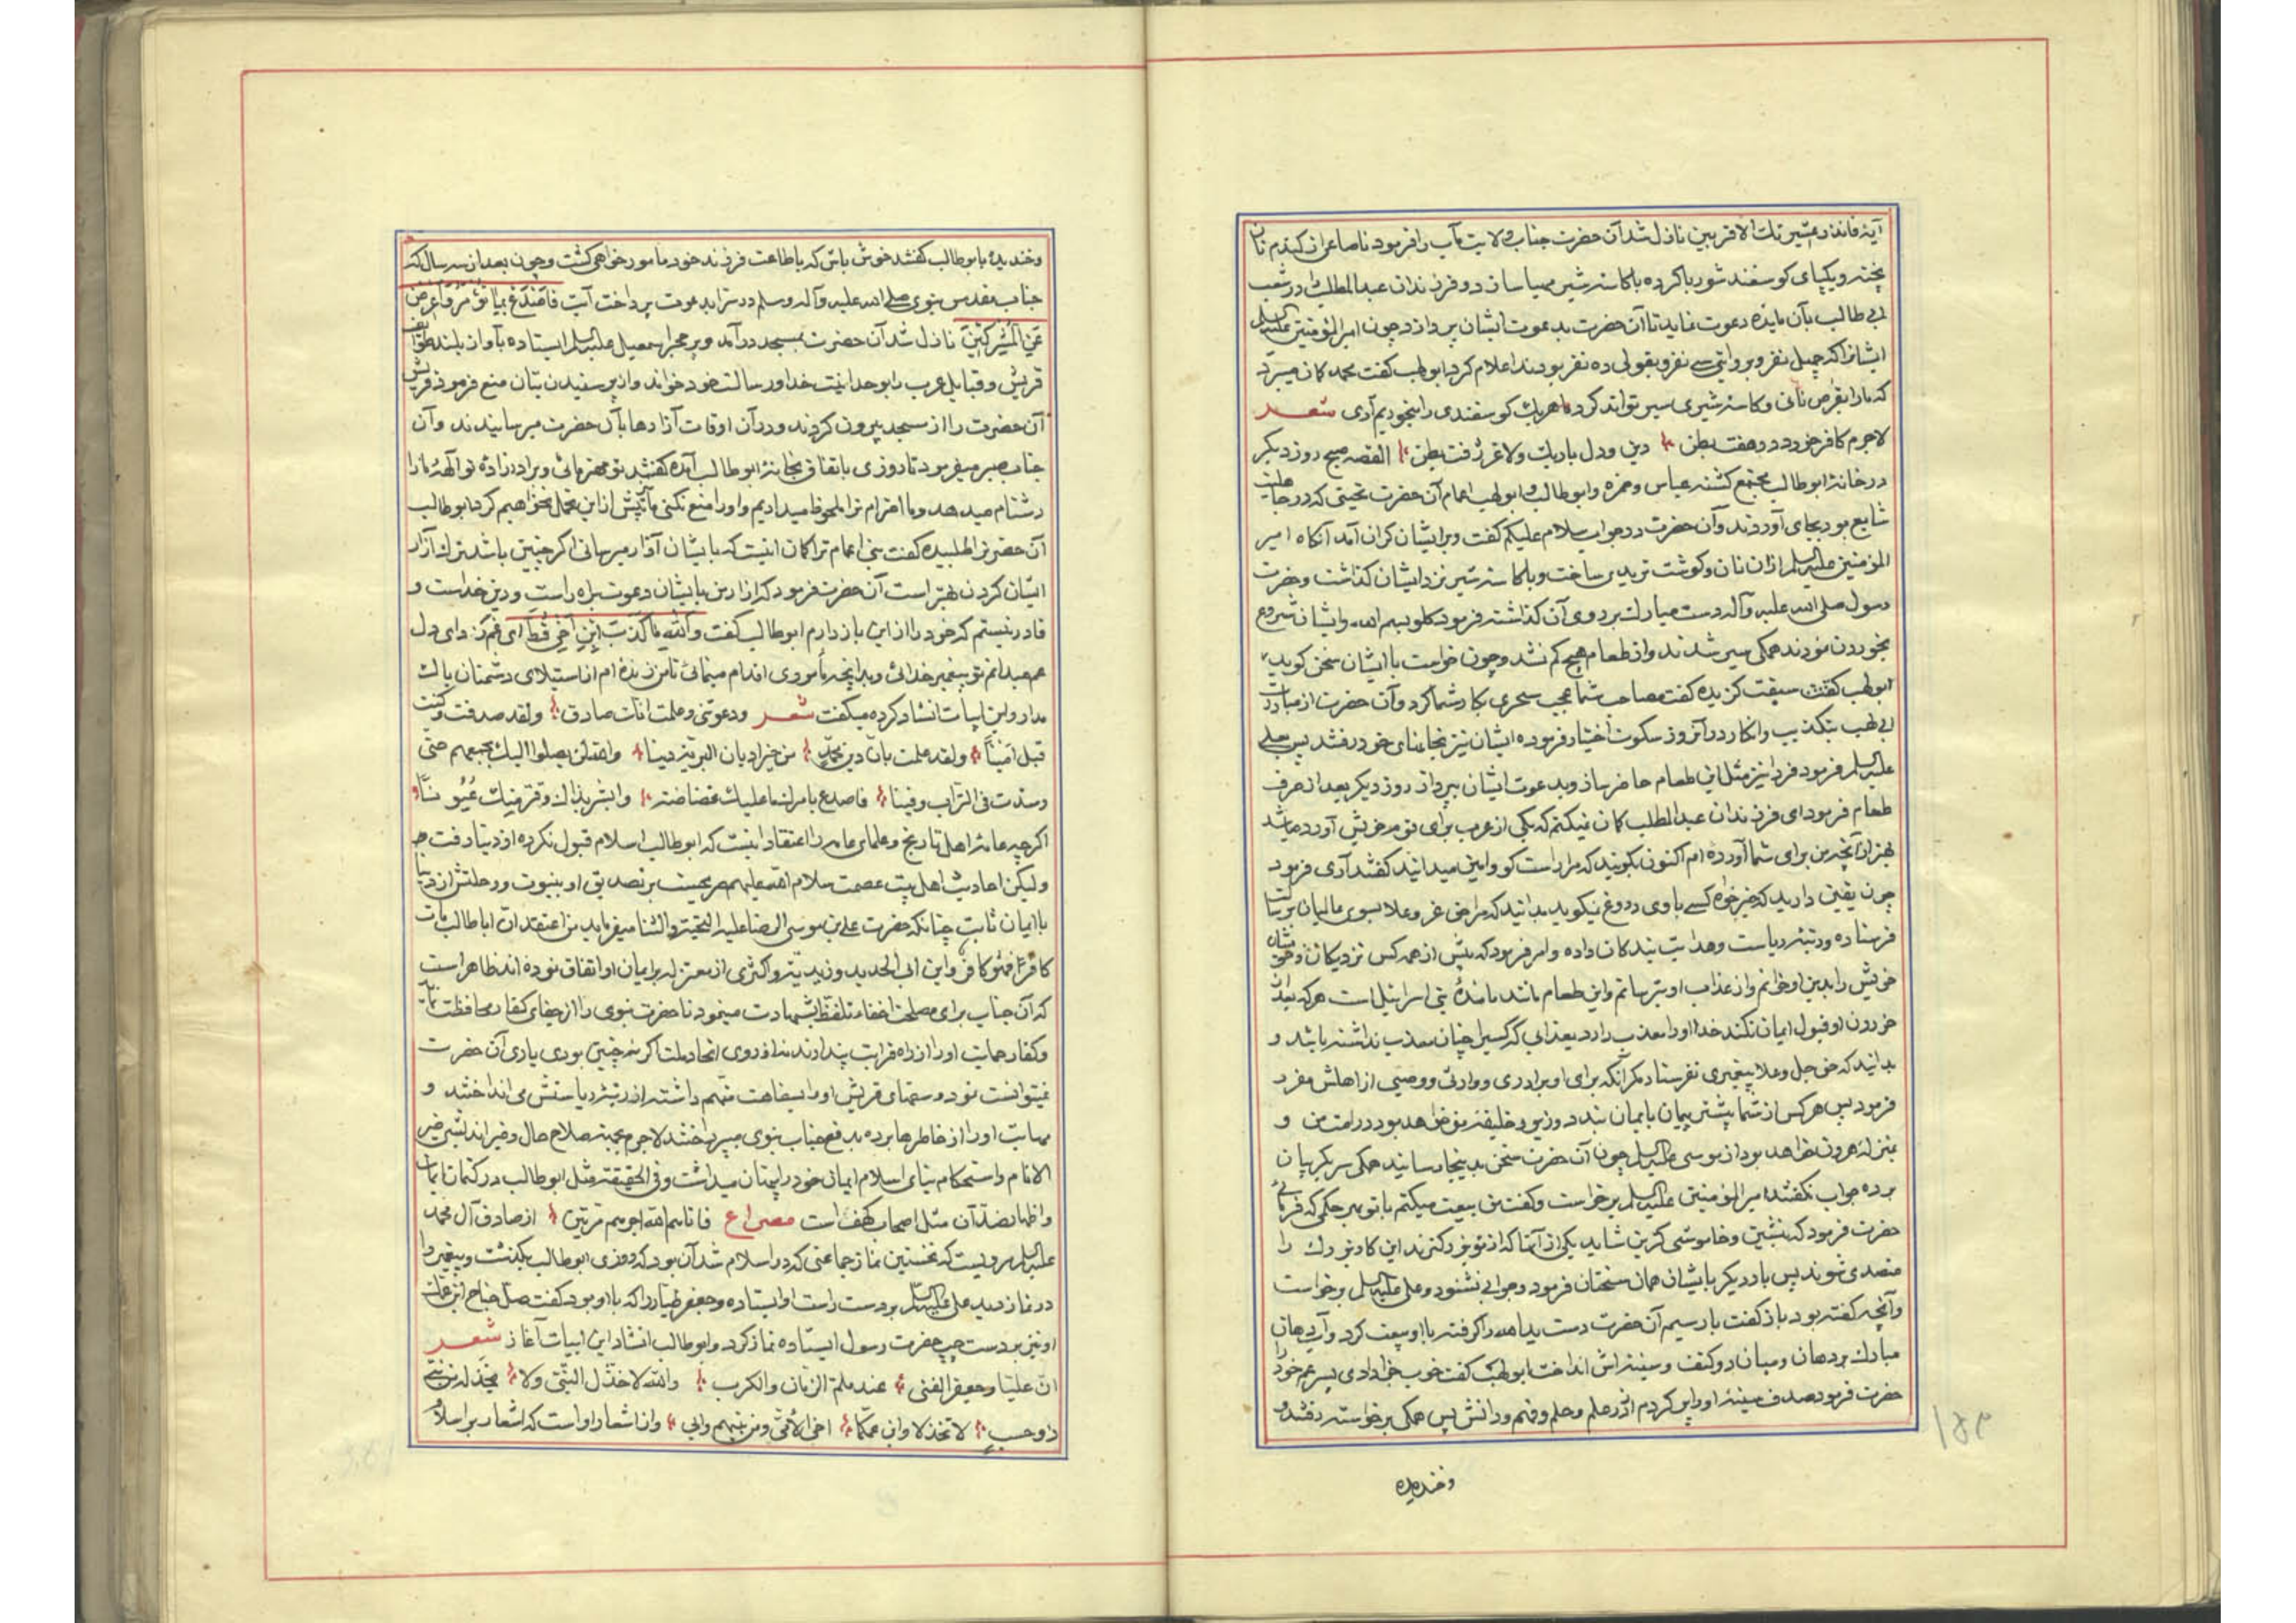 آیهٔ فانذر عشیرتك الاقربین نازل شد آن حضرت جناب ولایت مآب را فرمود تا صاعی از کندم نان
پخته و یکپای کوسفند شوربا کرده با کاسهٔ شیر مهیا سازد و فرزندان عبدالمطلب را در شعب
ابی طالب بآن مایده دعوت نماید تا آن حضرت بدعوت ایشان پردازد چون امیرالمؤمنین علیه السلم
ایشانرا که چهل نفر و بروایتی سی نفر و بقولی ده نفر بودند اعلام کرد ابولهب کفت محمد کمان میبرد
که ما را بقرص نانی و کاسهٔ شیری سیر تواند کرد ما هر یك کوسفندی را میخوریم آری شعر
لاجرم کافر خورد در هفت بطن دین و دل باریك و لاغر زفت بطن القصه صبح روز دیکر
در خانهٔ ابوطالب مجتمع کشتند عباس و حمزه و ابوطالب و ابولهب اعمام آن حضرت تحیتی که در جاهلیت
شایع بود بجای آوردند و آن حضرت در جواب سلام علیکم کفت و بر ایشان کران آمد آنکاه امیر
المؤمنین علیه السلم از آن نان و کوشت تریدی ساخت و با کاسهٔ شیر نزد ایشان کذاشت و حضرت
رسول صلی الله علیه وآله دست مبارك بر روی آن کذاشته فرمود کلوا بسم الله و ایشان شروع
بخوردن نمودند همکی سیر شدند و از طعام هیچ کم نشد و چون خواست با ایشان سخن کوید
ابولهب سبقت کزیده کفت مصاحب شما عجب سحری بکار شما کرد و آن حضرت از مبادرت
ابی لهب بتکذیب و انکار در آنروز سکوت اختیار فرموده ایشان نیز بخانهای خود رفتند پس بعلی
علیه السلم فرمود فردا نیز مثل این طعام حاضر ساز و بدعوت ایشان پرداز روز دیکر بعد از صرف
طعام فرمود ای فرزندان عبدالمطلب کمان نمیکنم که یکی از عرب برای قوم خویش آورده باشد
بهتر از آنچه من برای شما آورده ام اکنون بکویند که مرا راست کو و امین میدانید کفتند آری فرمود
چون یقین دارید که خیرخواه کسی با وی دروغ نمیکوید بدانید که مرا حق عز و علا بسوی عالمیان
فرستاده و رتبهٔ ریاست و هدایت بندکان داده و امر فرمود که پیش از همه کس نزدیکان و خویشان
خویش را بدین او خوانم و از عذاب او بترسانم و این طعام مانند مائدهٔ بنی اسرائیل است هر که بعد از
خوردن او قبول ایمان نکند خدا او را معذب دارد بعذابی که کسیرا چنان معذب نداشته باشد و
بدانید که حق جل و علا پیغمبری نفرستاد مکر آنکه برای او برادری و وارثی و وصیی از اهلش مقرر
فرمود پس هر کس از شما پیشتر پیمان با بمان بندد وزیر و خلیفهٔ من خواهد بود در امت من و
بمنزلهٔ هرون خواهد بود از موسی علیه السلم چون آن حضرت سخن بدینجا رسانید همکی سر بکریبان
برده جواب نکفتند امیرالمؤمنین علیه السلم برخواست و کفت من بیعت میکنم با تو بهر حکمی که فرمائی
حضرت فرمود که بنشین و خاموشی کزین شاید یکی از آنها که از تو بزرکترند این کار بزرك را
متصدی شوند پس بار دیکر با ایشان همان سخنان فرمود و جوابی نشنود و علی علیه السلم برخواست
و آنچه کفته بود باز کفت بار سیم آن حضرت دست یداهله را کرفته با او بیعت کرد و آب دهان
مبارك بر دهان و میان دو کتف و سینه اش انداخت ابولهب کفت خوب جزا دادی پسر عم خود را
حضرت فرمود صدف سینهٔ او را پر کردم از در علم و حلم و فهم و دانش پس همکی برخواسته رفتند
و خندیده
و خندیده با بوطالب کفتند خوش باش که باطاعت فرزند خود مامور خواهی کشت و چون بعد از سه سال که
جناب مقدس نبوی صلی الله علیه وآله وسلم در ستر بدعوت پرداخت آیت فاصدع بما تؤمر و أعرض
عن المشرکین نازل شد آن حضرت بمسجد درآمد و بر حجر اسمعیل علیه السلم ایستاده بآواز بلند طوایف
قریش و قبایل عرب را بوحدانیت خدا و رسالت خود خواند و از پرستیدن بتان منع فرمود قریش
آن حضرت را از مسجد بیرون کردند و در آن اوقات آزارها بآن حضرت میرسانیدند و آن
جناب صبر میفرمود تا روزی باتفاق بخانهٔ ابوطالب آمده کفتند تو مهتر مائی و برادرزادهٔ تو آلههٔ ما را
دشنام میدهد و ما احترام ترا ملحوظ میداریم و او را منع نکنی ما پیش از این تحمل نخواهیم کرد ابوطالب
آن حضرت را طلبیده کفت بنی اعمام ترا کمان اینست که بایشان آزار میرسانی اکر چنین باشد ترك آزار
ایشان کردن بهتر است آن حضرت فرمود که آزار من بایشان دعوت براه راست و دین خداست و
قادر نیستم که خود را از این باز دارم ابوطالب کفت و الله ما کذب ابن اخی قط ای غمزدای دل
عم میدانم تو پیغمبر خدائی و بر آنچه مأموری اقدام مینمائی تا من زنده ام از استیلای دشمنان باك
مدار و این ابیات انشاد کرده میکفت شعر ودعوتنی وعلمت انك صادق ولقد صدقت وکنت
قبل امینا ولقد علمت بان دین محمد من خیر ادیان البریة دینا والله لن یصلوا الیك بجمعهم حتی
اوسد فی التراب دفینا فاصدع بامرك ما علیك غضاضة وابشر بذاك وقر منك عیونا
اکرچه عامهٔ اهل تاریخ و علمای عامه را اعتقاد اینست که ابوطالب اسلام قبول نکرده از دنیا رفت
ولیکن احادیث اهل بیت عصمت سلام الله علیهم صریحست بر تصدیق او بنبوت و رحلتش از دنیا
با ایمان ثابت چنانکه حضرت علی بن موسی الرضا علیه التحیة والثنا میفرماید من اعتقد ان اباطالب مات
کافرا فهو کافر و ابن ابی الحدید و زیدیة و کثری از معتزله بر ایمان او اتفاق نموده اند ظاهر است
که آن جناب برای مصلحت اخفاء تلفظ بشهادت مینمود تا حضرت نبوی را از جفای کفار محافظت نماید
و کفار حمایت او را از راه قرابت پندارند نه از روی اتحاد ملت اکر نه چنین بودی یاری آن حضرت
نمیتوانست نمود و سفهای قریش او را بسفاهت متهم داشته از رتبهٔ ریاستش می انداختند و
مهابت او را از خاطرها برده بدفع جناب نبوی میپرداختند لاجرم بجهة صلاح حال و خیراندیشی خیر
الانام و استحکام بنای اسلام ایمان خود را پنهان میداشت و فی الحقیقة مثل ابوطالب در کتمان ایمان
و اظهار ضد آن مثل اصحاب کهف است مصراع فاتاهم الله اجرهم مرتین از صادق آل محمد
علیه السلم مرویست که نخستین نماز جماعتی که در اسلام شد آن بود که روزی ابوطالب بکذشت و پیغمبر را
در نماز دید علی علیه السلم بر دست راست او ایستاده و جعفر طیار را که با او بود کفت صل جناح ابن عمك
او نیز بر دست چپ حضرت رسول ایستاده نماز کرد و ابوطالب انشاد این ابیات آغاز شعر
ان علیا وجعفرا ثقتی عند ملم الزمان والکرب والله لا اخذل النبی ولا یخذله من بنی
ذو حسب لا تخذلا وانصرا ابن عمکما اخی لامی من بینهم وابی و از اشعار او است که اشعار بر اسلام